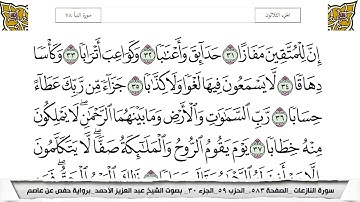 الجزء الثلاثون
سورة النبأ ٧٨
إِنَّ لِلْمُتَّقِينَ مَفَازًا ٣١ حَدَائِقَ وَأَعْنَابًا ٣٢ وَكَوَاعِبَ أَتْرَابًا ٣٣ وَكَأْسًا
دِهَاقًا ٣٤ لَّا يَسْمَعُونَ فِيهَا لَغْوًا وَلَا كِذَّابًا ٣٥ جَزَاءً مِّن رَّبِّكَ عَطَاءً
حِسَابًا ٣٦ رَّبِّ السَّمَاوَاتِ وَالْأَرْضِ وَمَا بَيْنَهُمَا الرَّحْمَٰنِ ۖ لَا يَمْلِكُونَ
مِنْهُ خِطَابًا ٣٧ يَوْمَ يَقُومُ الرُّوحُ وَالْمَلَائِكَةُ صَفًّا ۖ لَّا يَتَكَلَّمُونَ
سورة النازعات _الصفحة ٥٨٣_ الحزب ٥٩_الجزء ٣٠_ بصوت الشيخ عبد العزيز الأحمد_برواية حفص عن عاصم